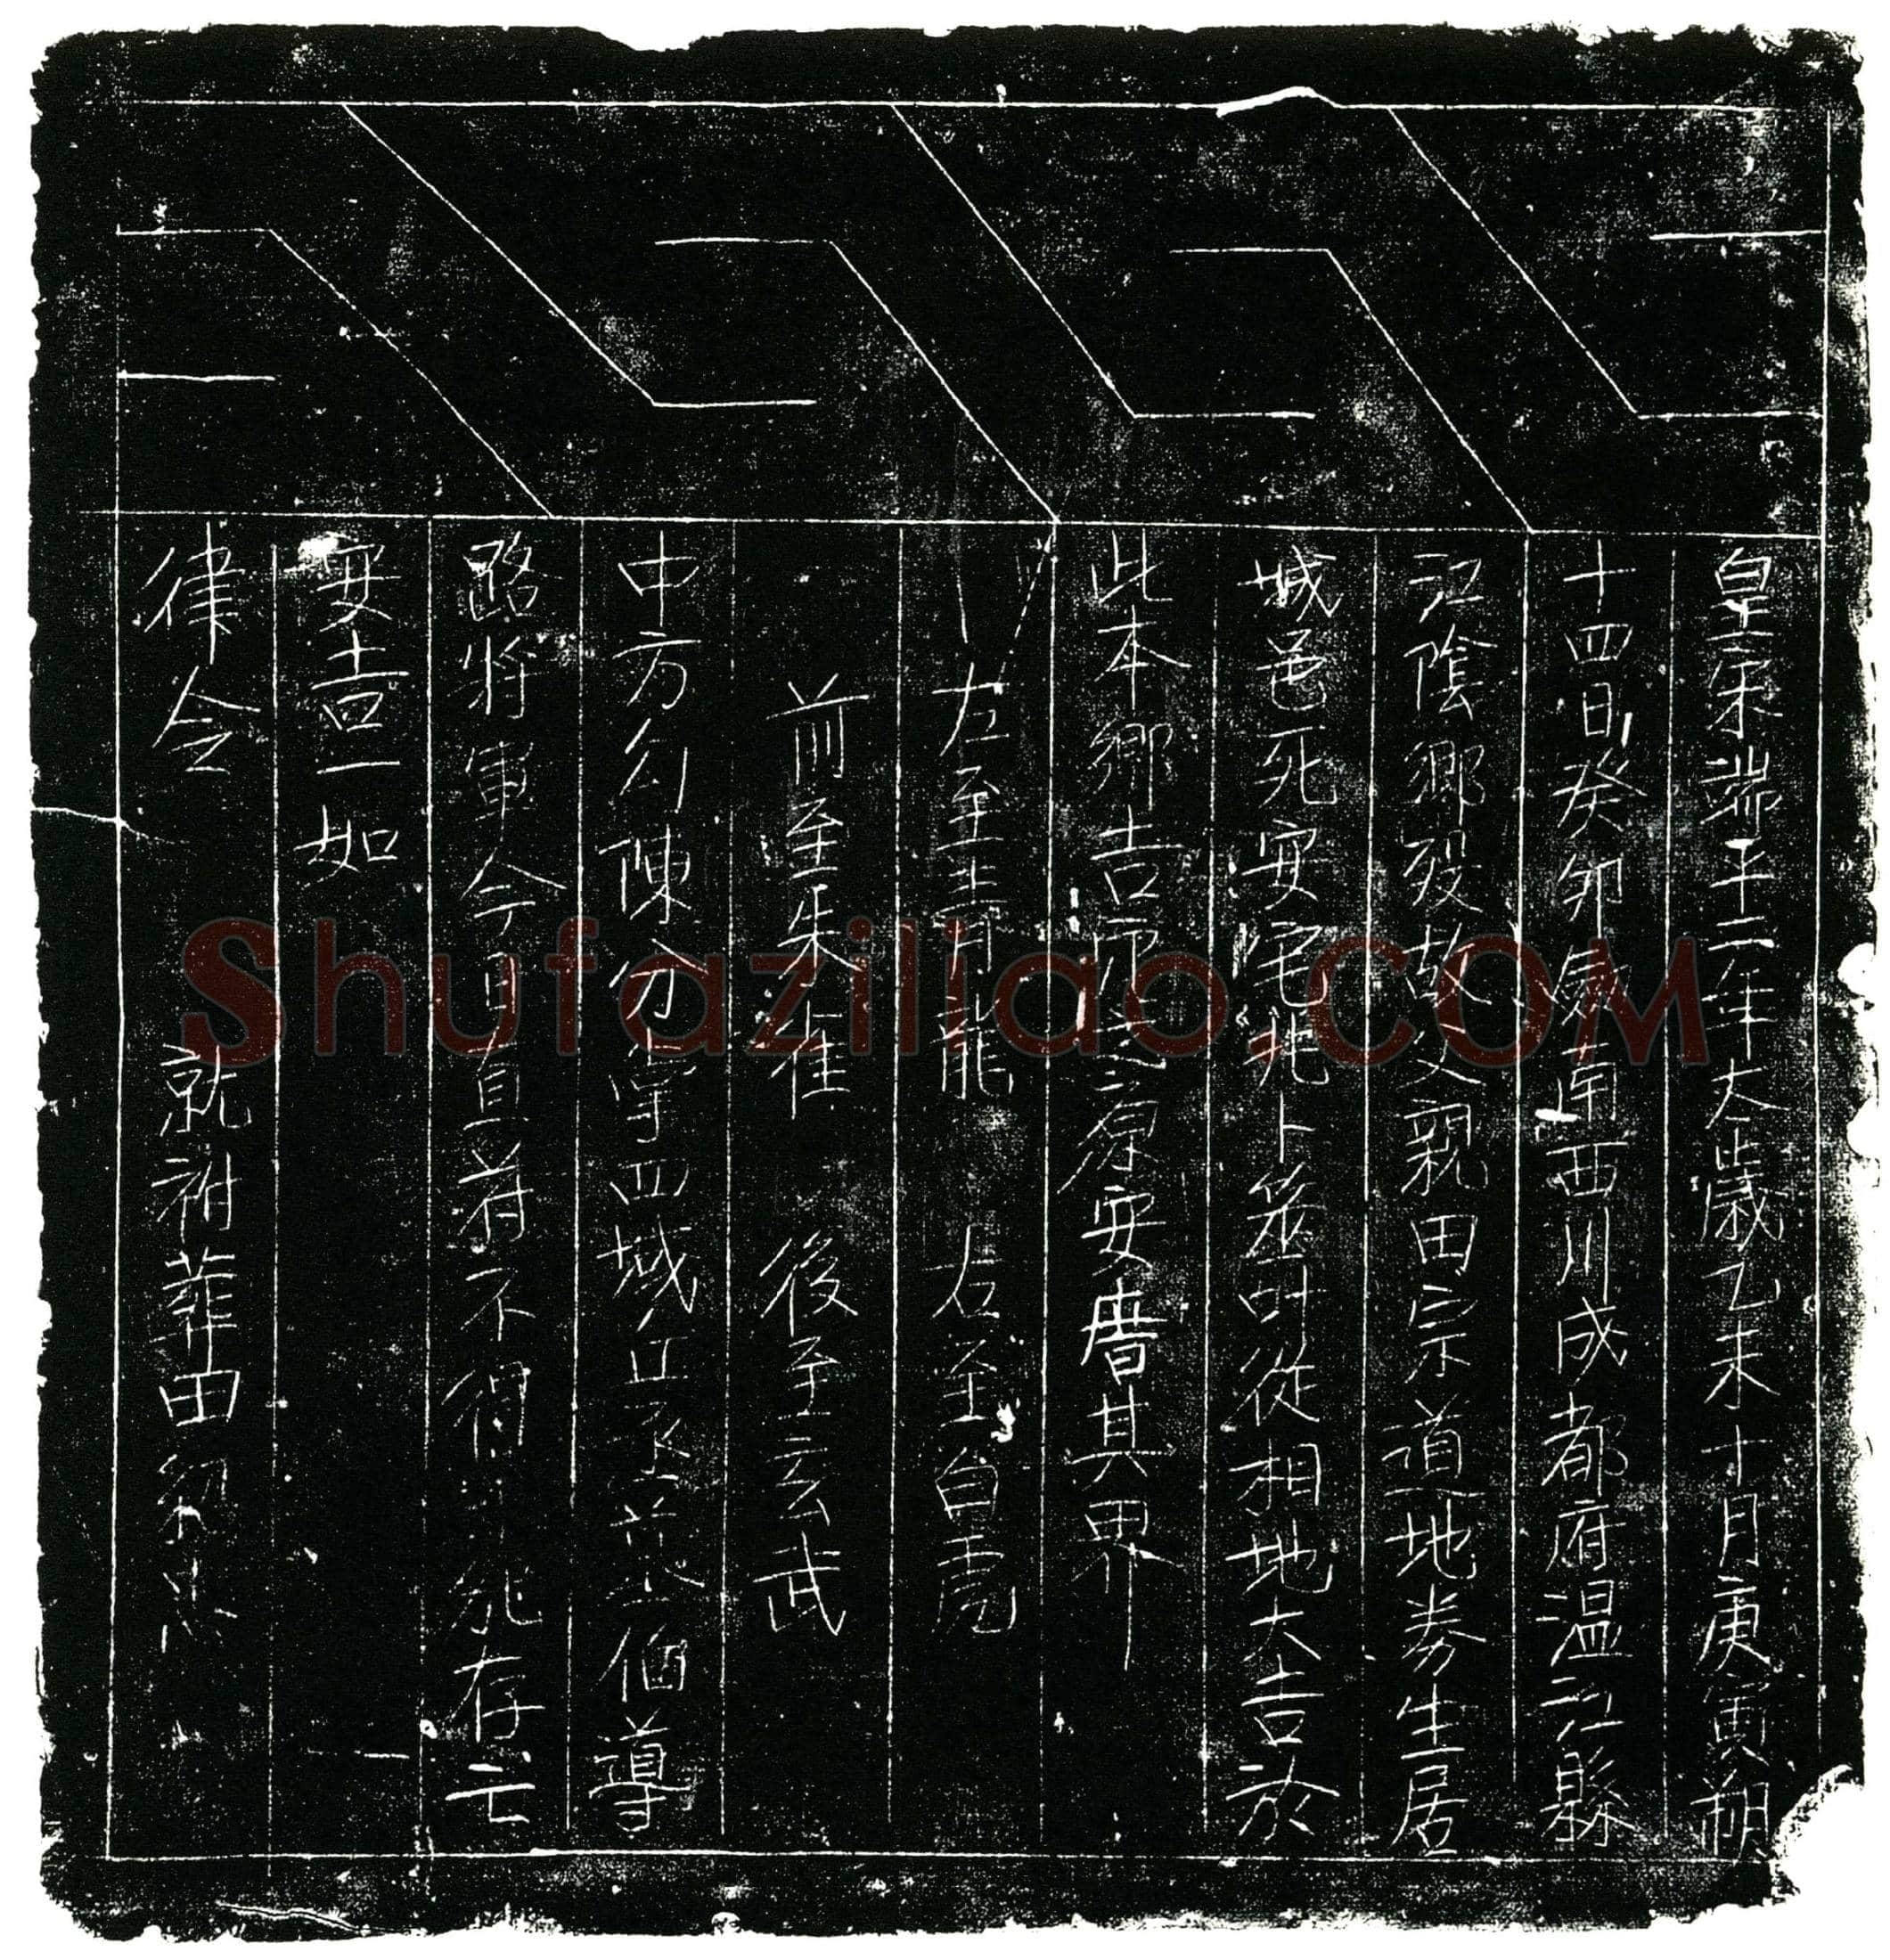 皇宋端平二年大歲乙未十月庚寅朔
十四日癸卯劍南西川成都府温江縣
江陰鄉歿故父親田宗道地券生居
城邑死安宅兆卜筮叶從相地大吉於
此本鄉吉之原安厝其界
左至青龍 右至白虎
前至朱雀 後至玄武
中方勾陳分守四域丘丞墓伯導
路將軍今日直符不得存亡
安吉一如
律令 就祔葬田
Shufaziliao.COM